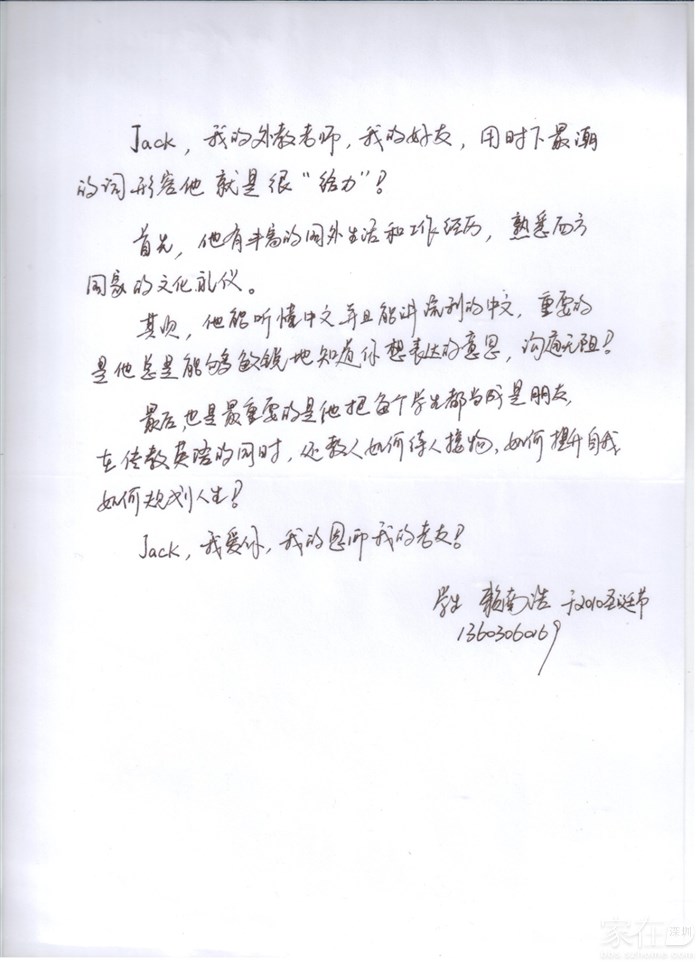 Jack，我的外教老师，我的好友，用时下最潮
的词形容他就是很“给力”！
首先，他有丰富的国外生活和工作经历，熟悉西方
国家的文化礼仪。
其次，他能听懂中文并且能讲流利的中文，重要的
是他总是能够敏锐地知道你想表达的意思，沟通无阻！
最后也是最重要的是他把每个学生都当成是朋友，
在传教英语的同时，还教人如何待人接物、如何提升自我
如何规划人生！
Jack，我爱你，我的恩师我的老友！
学生 赖南浩 于2010圣诞节
13603060169
家在深圳